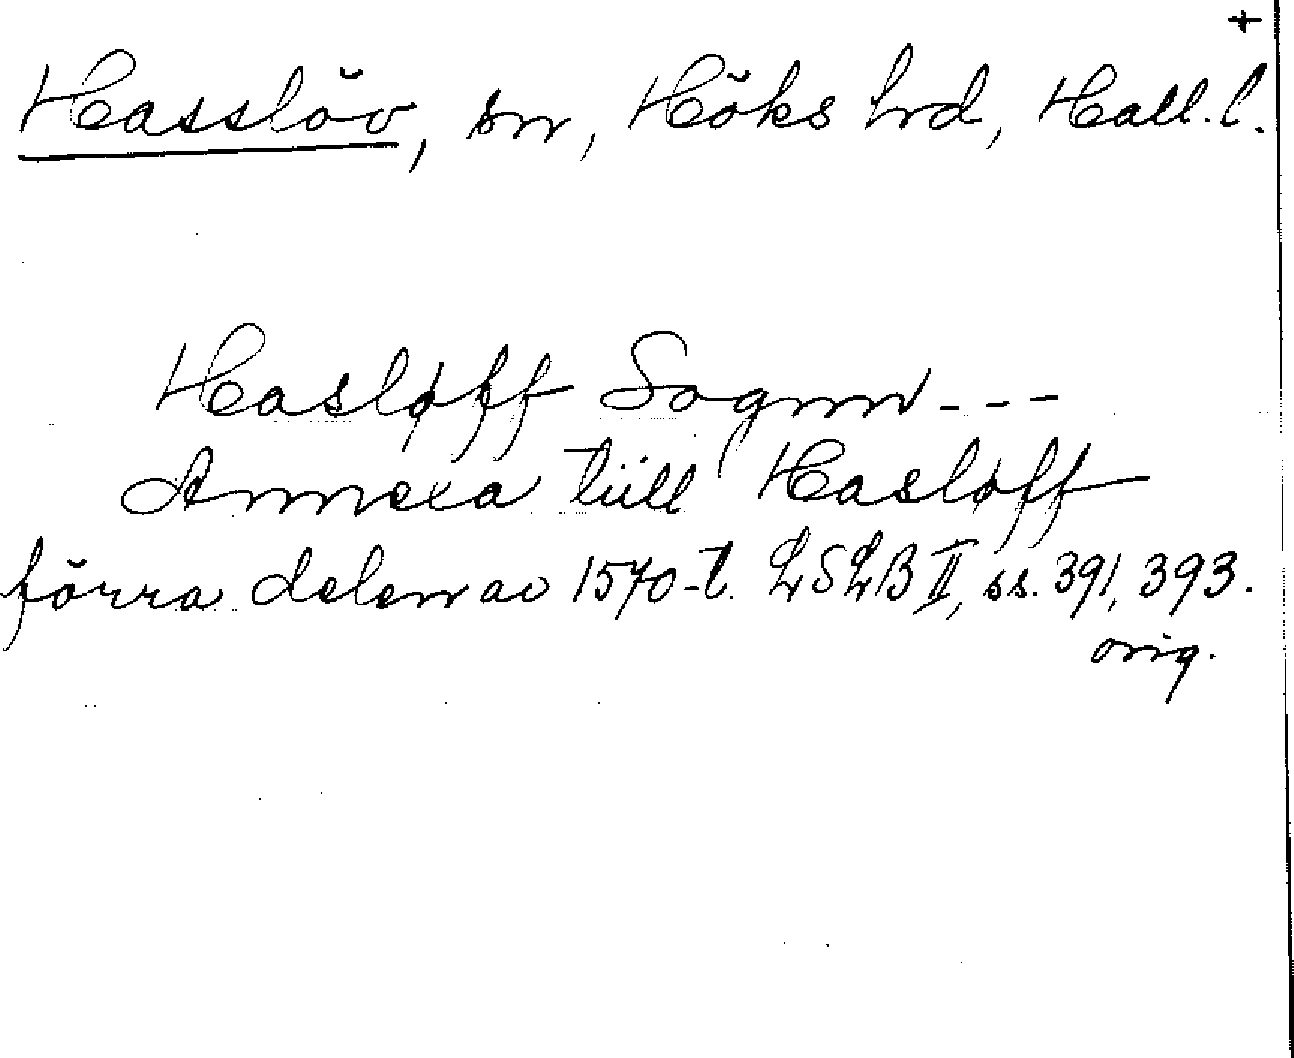 +
Hasslöv, sn, Höks hrd, Hall. l.
Hasløff Sognn - - -
Annexa tiill Hasløff
förra delen av 1570-t. LSLB II, ss. 391, 393.
orig.